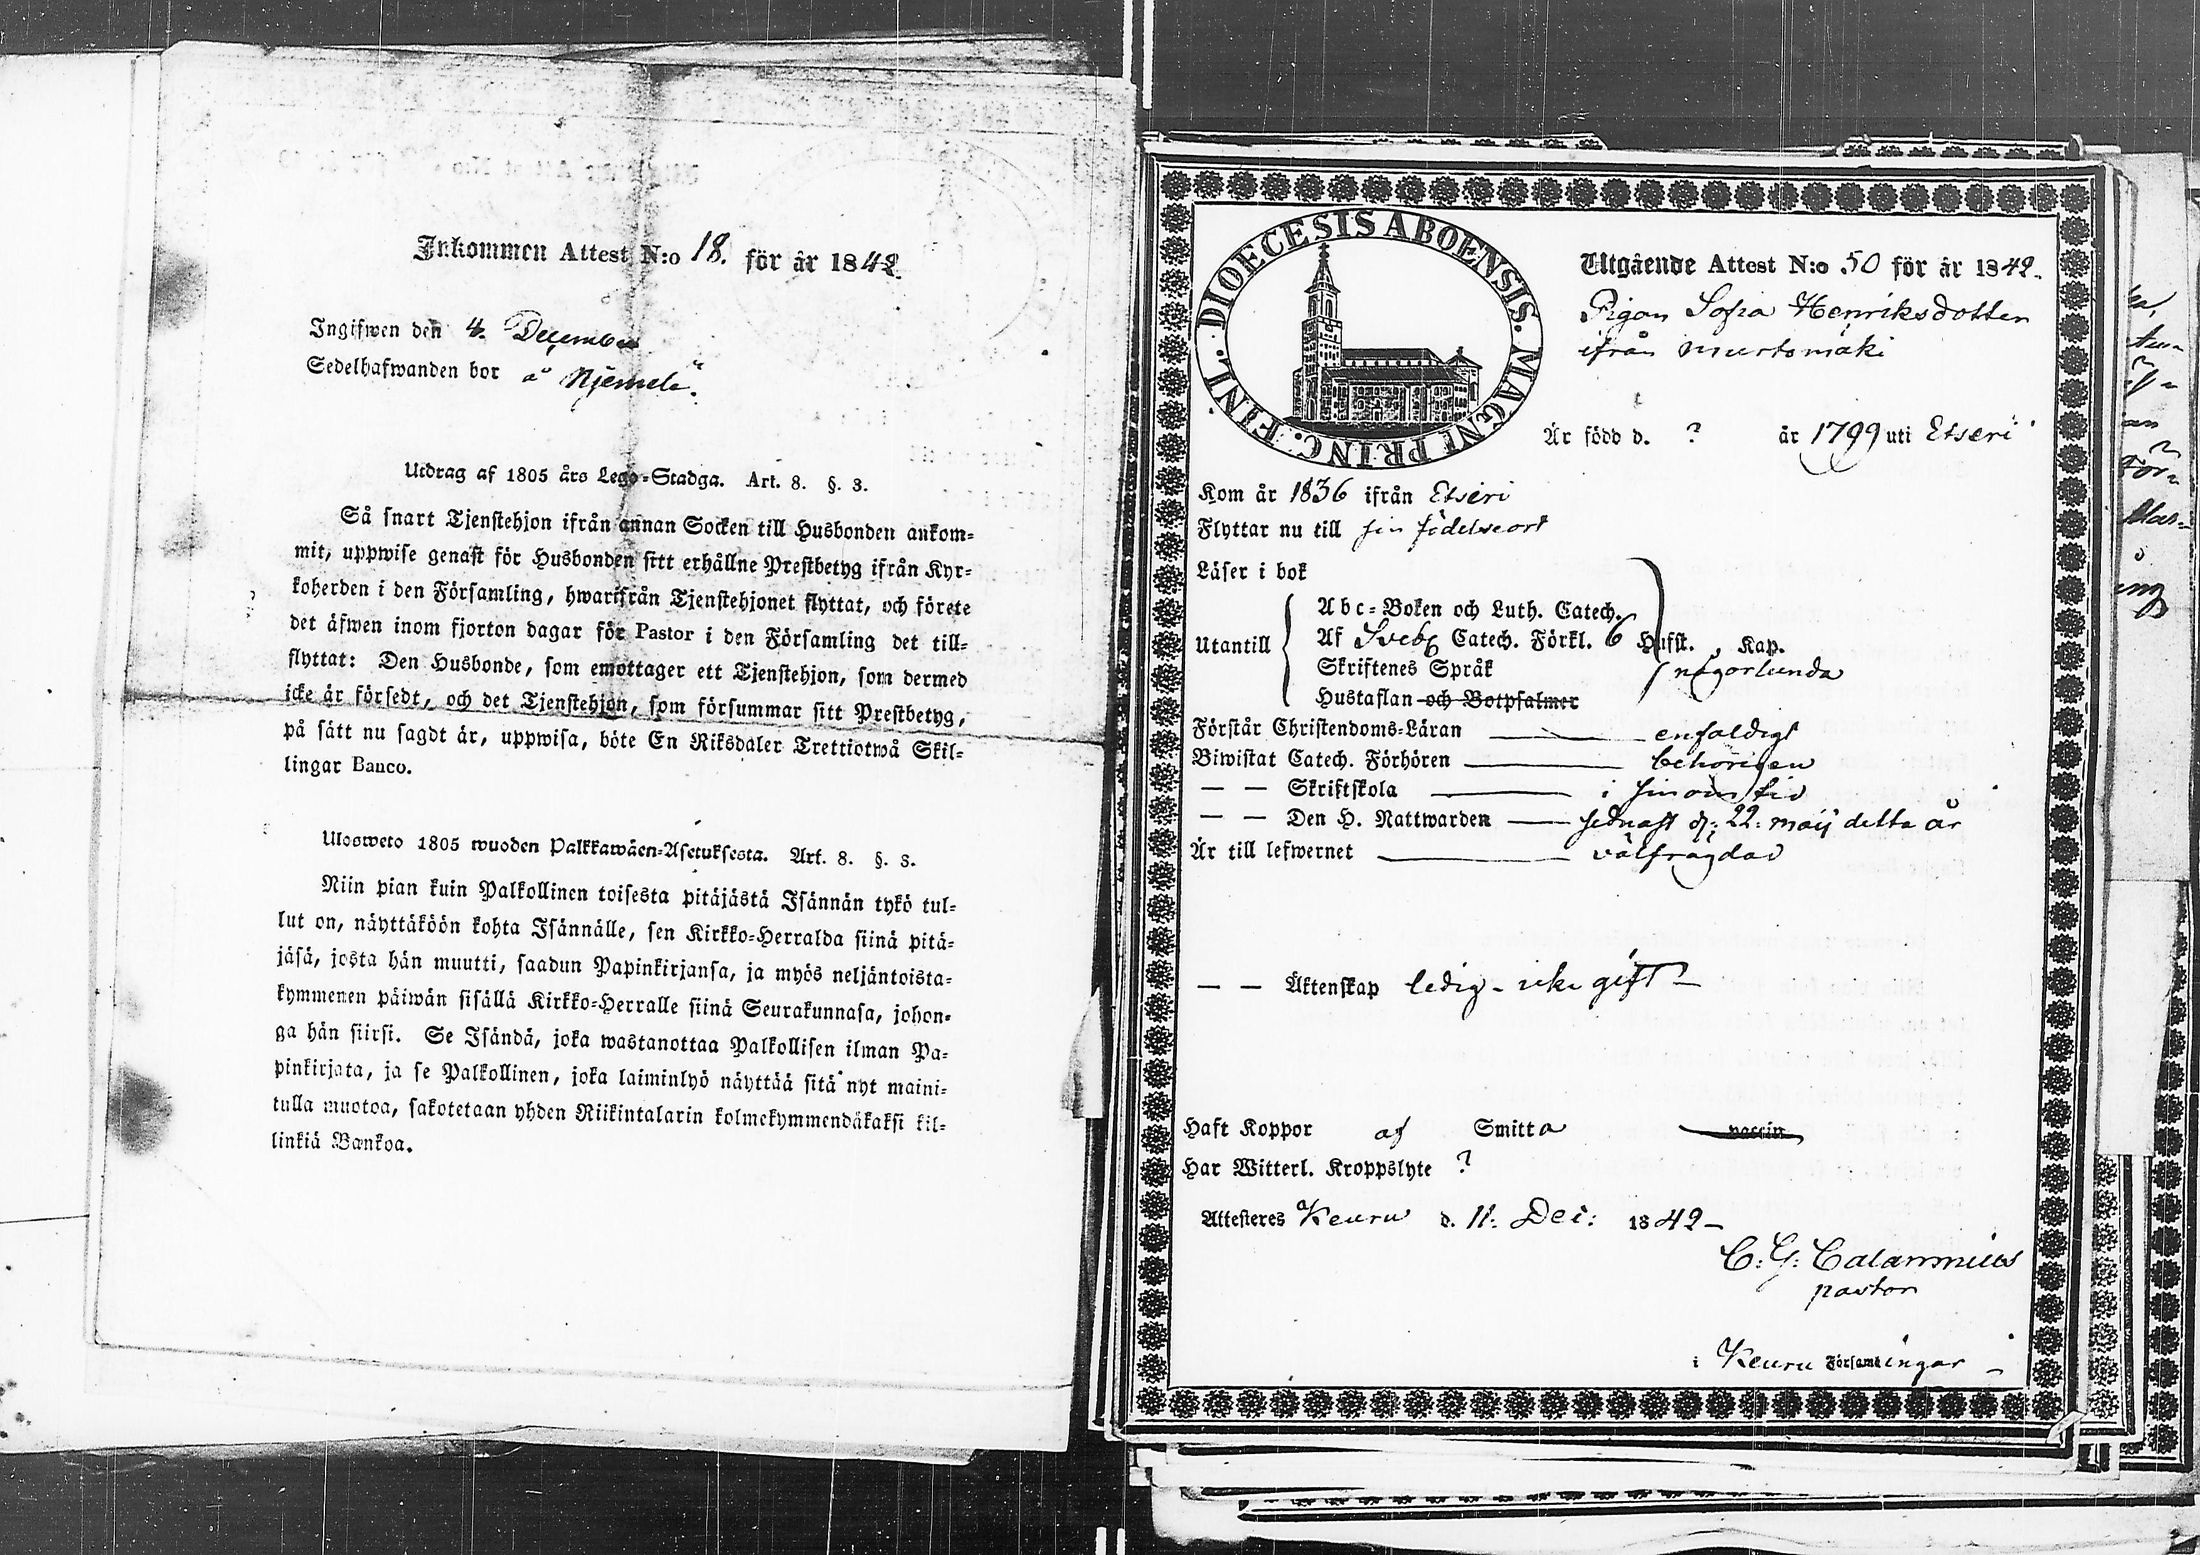 Inkommen Attest N:o 18. för år 1842.
Ingifwen den 4. December
Sedelhafwanden bor å Njemelä.
Utdrag af 1805 års Lego-Stadga. Art. 8. §. 3.
Så snart Tjenstehjon ifrån annan Socken till Husbonden ankom-
mit, uppwise genast för Husbonden sitt erhållne Prestbetyg ifrån Kyr-
koherden i den Församling, hwarifrån Tjenstehjonet flyttat, och förete
det äfwen inom fjorton dagar för Pastor i den Församling det till-
flyttat: Den Husbonde, som emottager ett Tjenstehjon, som dermed
icke är försedt, och det Tjenstehjon, som försummar sitt Prestbetyg,
på sätt nu sagdt är, uppwisa, böte En Riksdaler Trettiotwå Skil-
lingar Banco.
Ulosweto 1805 wuoden Palkkawäen-Asetuksesta. Art. 8. §. 3.
Niin pian kuin Palkollinen toisesta pitäjästä Isännän tykö tul-
lut on, näyttäköön kohta Isännälle, sen Kirkko-Herralda siinä pitä-
jäsä, josta hän muutti, saadun Papinkirjansa, ja myös neljäntoista-
kymmenen päiwän sisällä Kirkko-Herralle siinä Seurakunnasa, johon-
ga hän siirsi. Se Isändä, joka wastanottaa Palkollisen ilman Pa-
pinkirjata, ja se Palkollinen, joka laiminlyö näyttää sitä nyt maini-
tulla muotoa, sakotetaan yhden Riikintalarin kolmekymmendäkaksi kil-
linkiä Bankoa.
DIOECESIS ABOENSIS. MAGNI PRINC. FINL.
Utgående Attest N:o 50 för år 1842.
Pigan Sofia Henriksdotter
ifrån Murtomäki
Är född d. ? år 1799 uti Etseri
Kom år 1836 ifrån Etseri
Flyttar nu till sin födelseort
Läser i bok
Abc-Boken och Luth. Catech.
Utantill Af Sveb Catech. Förkl. 6 Hufst. , Kap.
Skriftenes Språk någorlunda
Hustaflan och Botpsalmer
Förstår Christendoms-Läran enfaldigt
Biwistat Catech. Förhören behörigen
— — Skriftskola i sinom tid
— — Den H. Nattwarden sednast d: 22: maij detta år
Är till lefwernet välfrägdad
— — Äktenskap ledig - icke gift -
Haft Koppor af Smitta vaccin
Har Witterl. Kroppslyte ?
Attesteres Keuru d. 11: Dec: 1842 -
C: G: Calamnius
pastor
i Keuru Församlingar -